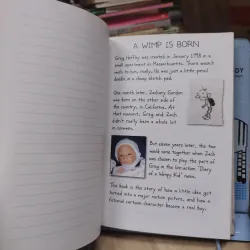 A WIMP IS BORN
Greg Heffley was created in January 1998 in a
small apartment in Massachusetts. There wasn't
really to him, really. He was just a little pencil
doodle in a cheap sketch pad.
One month later, Zachary Gordon
was born on the other side
of the country, in California. At
that moment, Greg and Zach
didn't really have a whole lot
in common.
But eleven years later, the two
would come together when Zach
was chosen to play the part of
Greg in the live-action "Diary
of a Wimpy Kid" movie.
This book is the story of how a little idea got
turned into a major motion picture, and how a
fictional cartoon character became a real boy.